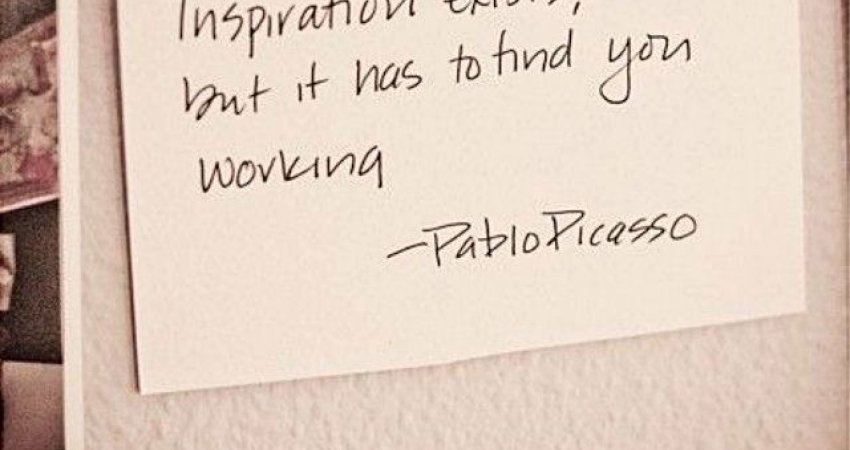 Inspiration exists,
but it has to find you
working
-Pablo Picasso